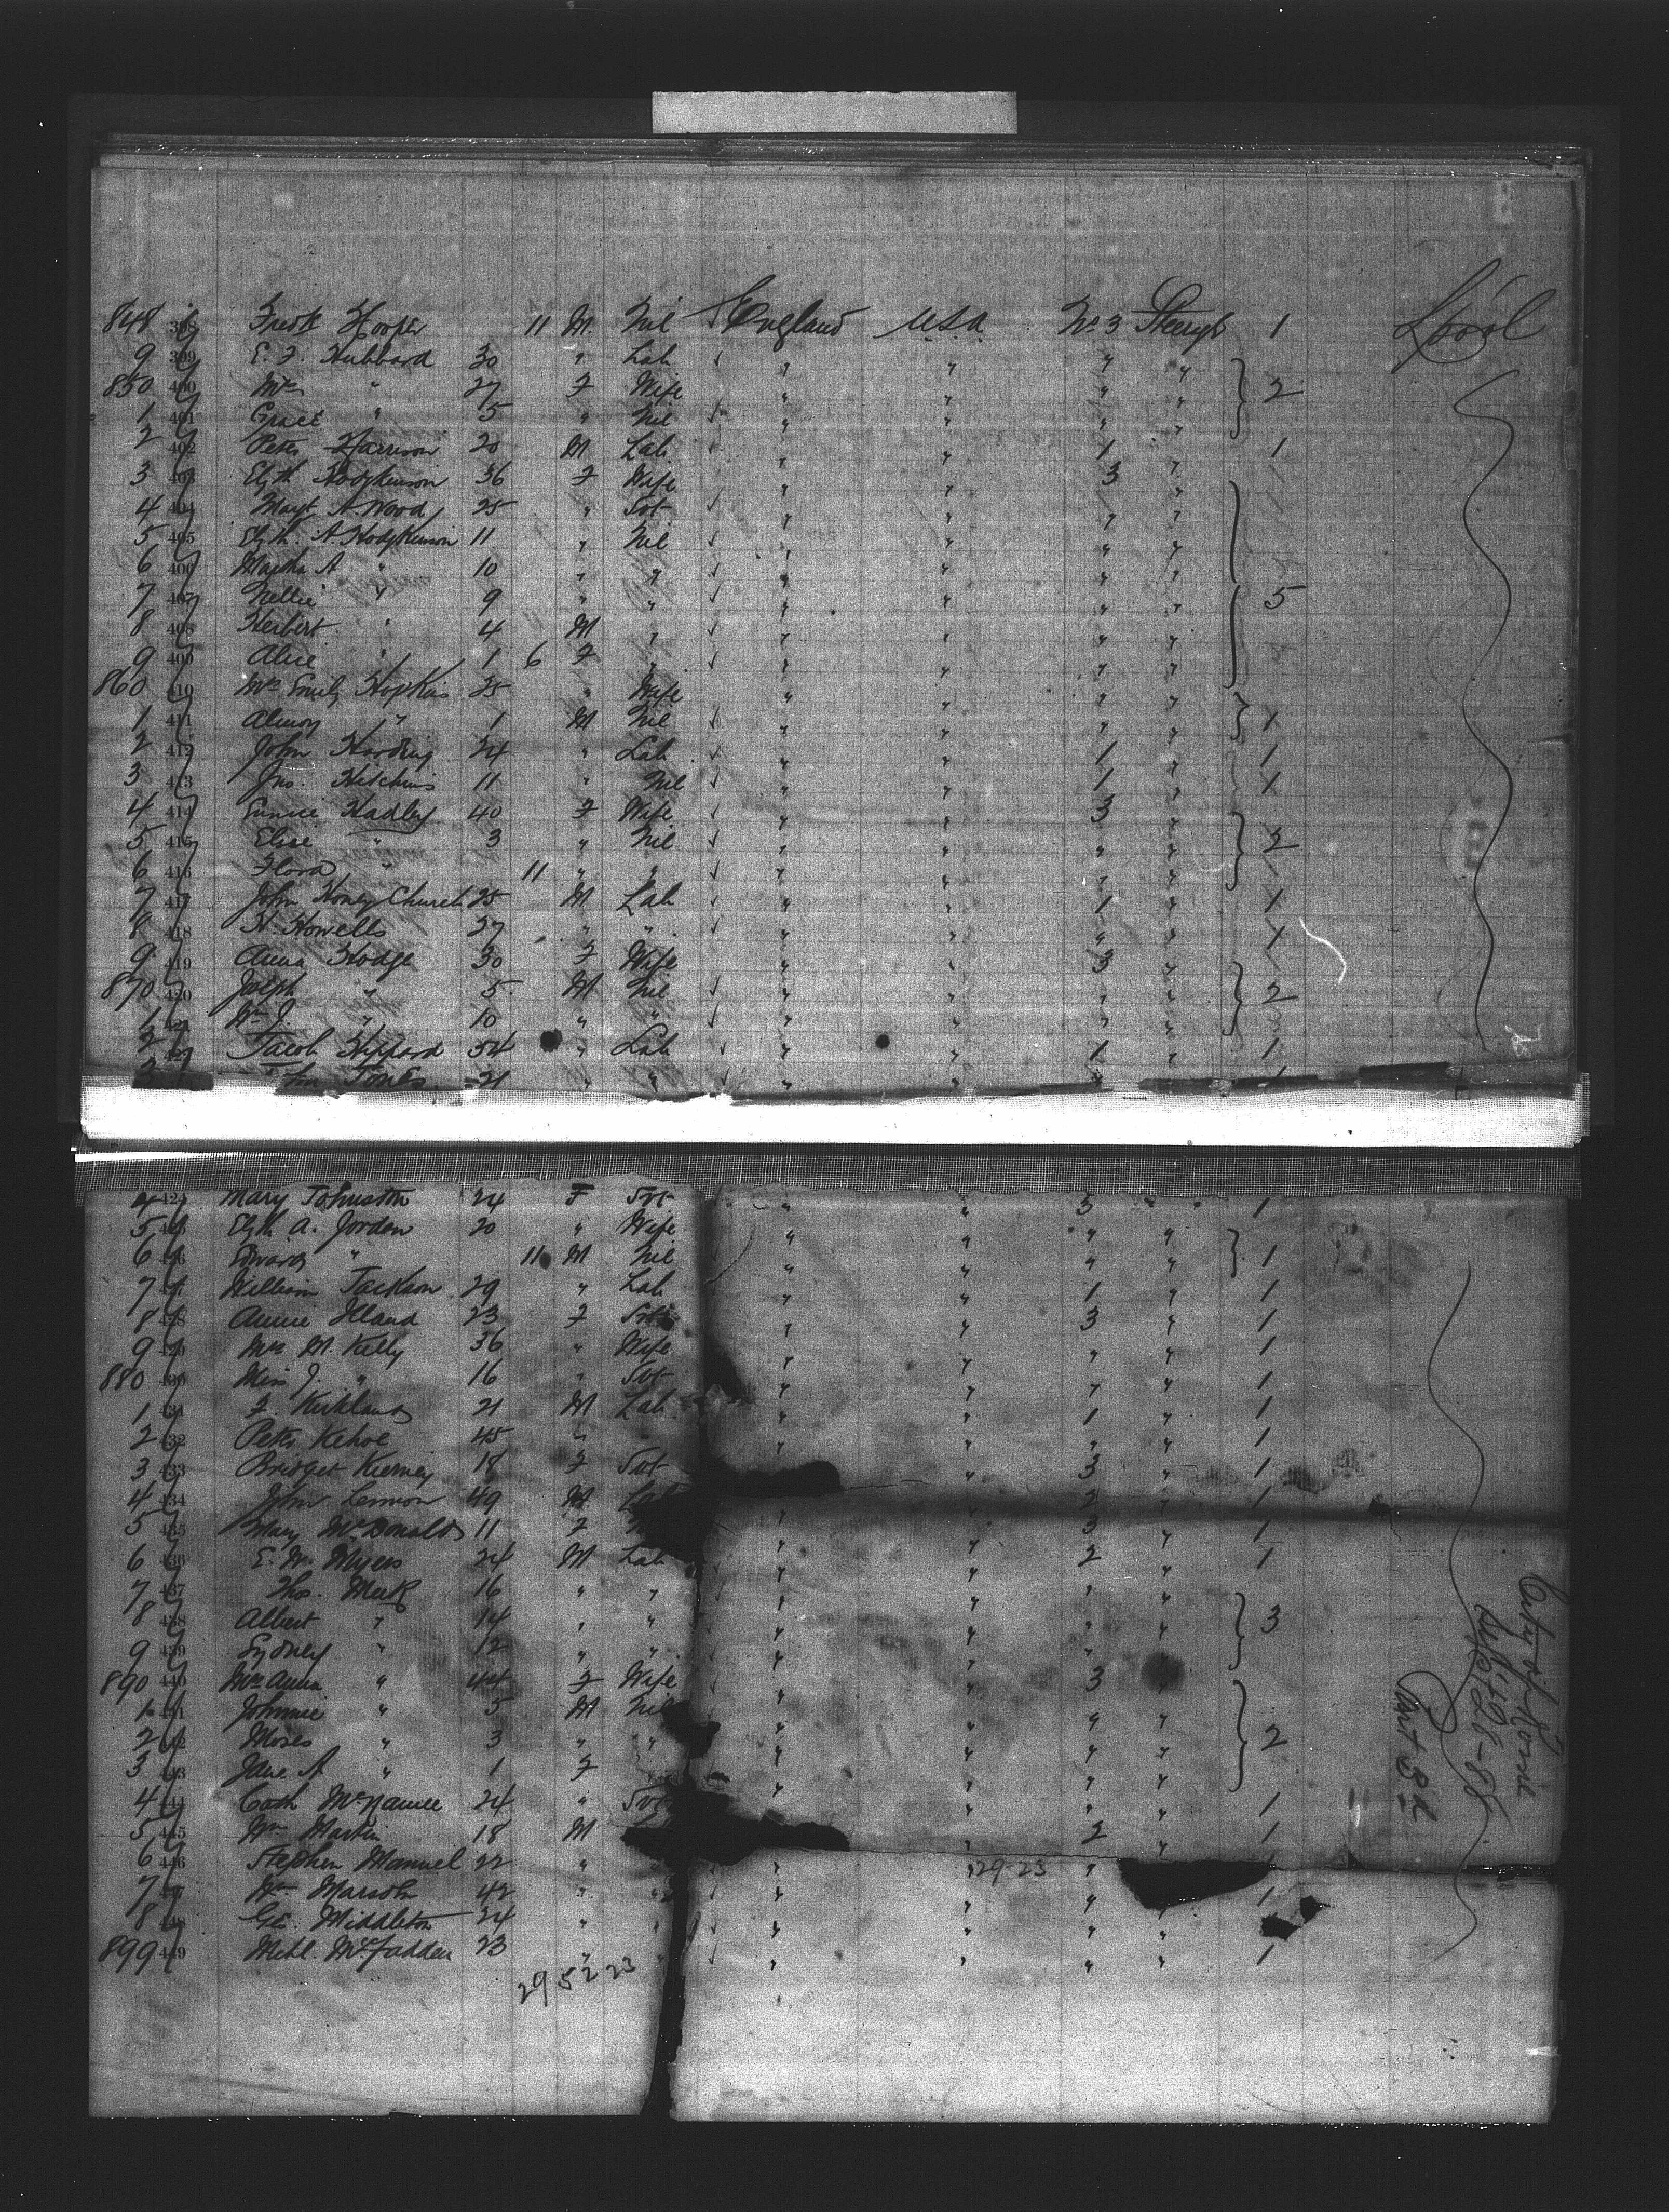 848 398 Fredk Hooper 11 M. Nil ✓ England U.S.A No. 3 Steerge 1 L'pool
9 399 E. F. Hubbard 30 " Lab ✓ " " " "
850 400 Mrs " 27 F Wife " " " " 2
1 401 Grace " 5 " Nil " " " "
2 402 Peter Harrison 20 M Lab " " 1 " 1
3 403 Elzth Hodgkinson 36 F Wife " " 3 "
4 404 Margt A. Wood 25 " Svt ✓ " " " "
5 405 Elzth. A. Hodgkinson 11 " Nil ✓ " " " "
6 406 Martha A " 10 " " ✓ " " " "
7 407 Nellie " 9 " " ✓ " " " " 5
8 408 Herbert " 4 M " ✓ " " " "
9 409 Alice " 1 6 F " ✓ " " " "
860 410 Mrs Emily Hopkins 25 " Wife " " " "
1 411 " 1 M Nil ✓ " " " " 1
2 412 John Harding 24 " Lab ✓ " " 1 " 1
3 413 Jno. Hitchins 11 " Nil ✓ " " 1 " 1
4 414 Eunice Hadley 40 F Wife ✓ " " 3 "
5 415 Elsie " 3 " Nil ✓ " " " " 2
6 416 Flora " 11 " " ✓ " " " "
7 417 John HoneyChurch 25 M Lab ✓ " " 1 " 1
8 418 H. Howells 27 " " ✓ " " " " 1
9 419 Anna Hodge 30 F Wife " " 3 "
870 420 Joseph " 5 M Nil ✓ " " " " 2
1 421 Wm J. " 10 " " ✓ " " " "
2 422 Jacob Hippard 54 " Lab ✓ " " 1 " 1
3 John Jones 21 " "
4 424 Mary Johnston 24 F Svt " " 3 " 1
5 Elzth A. Jordon 20 " Wife " " " "
6 Edward " 11 M Nil " " " " 1
7 William Jackson 29 " Lab " " 1 " 1
8 428 Annie Illand 23 F Svt " " 3 " 1
9 Mrs M. Kelly 36 " Wife " " " " 1
880 Miss J. " 16 " Svt " " " " 1
1 431 F. Kirkland 21 M Lab " " 1 " 1
2 432 Peter Kehoe 45 " " " " " 1
3 433 Bridget Kierney 18 F Svt " 3 " 1
4 434 John Lennon 49 M Lab 2 " 1
5 435 Mary McDonald 11 F " " 3 " 1
6 436 E. W. Myers 24 M Lab " " 2 " 1
7 437 Thos. Meek 16 " " " " " "
8 438 Albert " 14 " " " " " " 3
9 439 Sydney " 12 " " " " " "
890 440 Mrs Anna " 44 F Wife " " 3 "
1 441 Johnnie " 5 M Nil " " " "
2 442 Moses " 3 " " " " " " 2
3 443 Jane A " 1 F " " " "
4 Cath McNamee 24 " Svt " " " " 1
5 445 Wm Martin 18 M " " 2 " 1
6 446 Stephen Manuel 22 " " " " 29-23 "
7 Wm 42 " " ✓ " " " " 1
8 Geo. Middleton 24 " " ✓ " " " "
899 449 Michl. McFadden 23 " " ✓ " " " " 1
29 52 23
City of Rome
Sept 26-88
Part B L